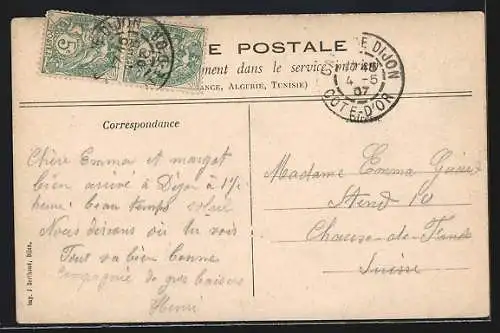 E POSTALE
ment dans le service intérieur
ANCE, ALGERIE, TUNISIE)
GARE DE DIJON
4 -5
07
COTE-D'OR
DIJON
5
Correspondance
Chère Emma et margot
bien arrivé à Dijon à 1 1/2
heure beau temps soleil
Nous désirons où tu vois
Tout va bien bonne
Compagnie de gros baisers
Henri
Madame Emma
Stend 10
Chaux-de-Fonds
Suisse
Imp. J Berthaud, Dijon.